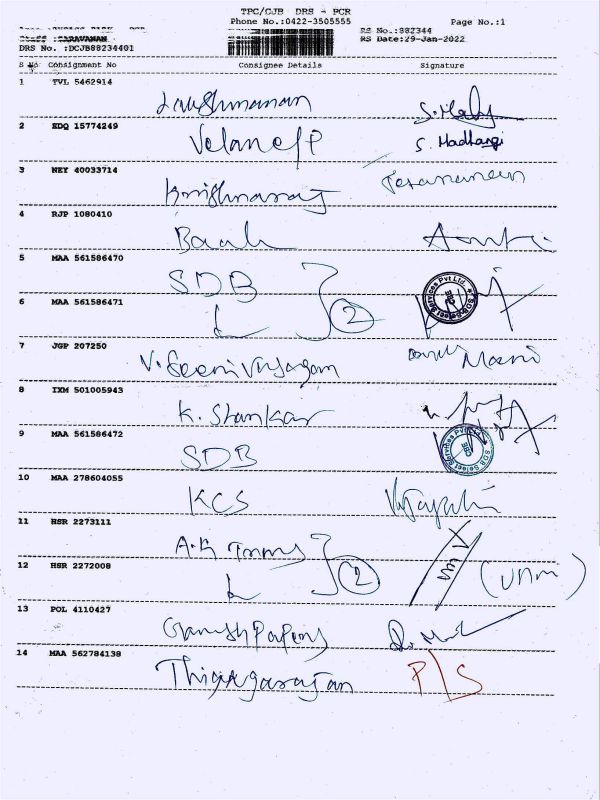 TPC/CJB DRS - PCR
Phone No.:0422-3505555 Page No.:1
RS No.:882344
Staff :SARAVANAN RS Date:29-Jan-2022
DRS No. :DCJB88234401
S No Consignment No Consignee Details Signature
1 TVL 5462914
Lakshmanan
2 EDQ 15774249
S. Madhangi
3 NEY 40033714
Krishnaraj
4 RJP 1080410
5 MAA 561586470
SDB
6 MAA 561586471
2
7 JGP 207250
V. Seenivasagam Mani
8 IXM 501005943
K. Shankar
9 MAA 561586472
SDB
10 MAA 278604055
KCS
11 HSR 2273111
12 HSR 2272008
2
13 POL 4110427
Ganesh Papers
14 MAA 562784138
Thiyagarajan P/S